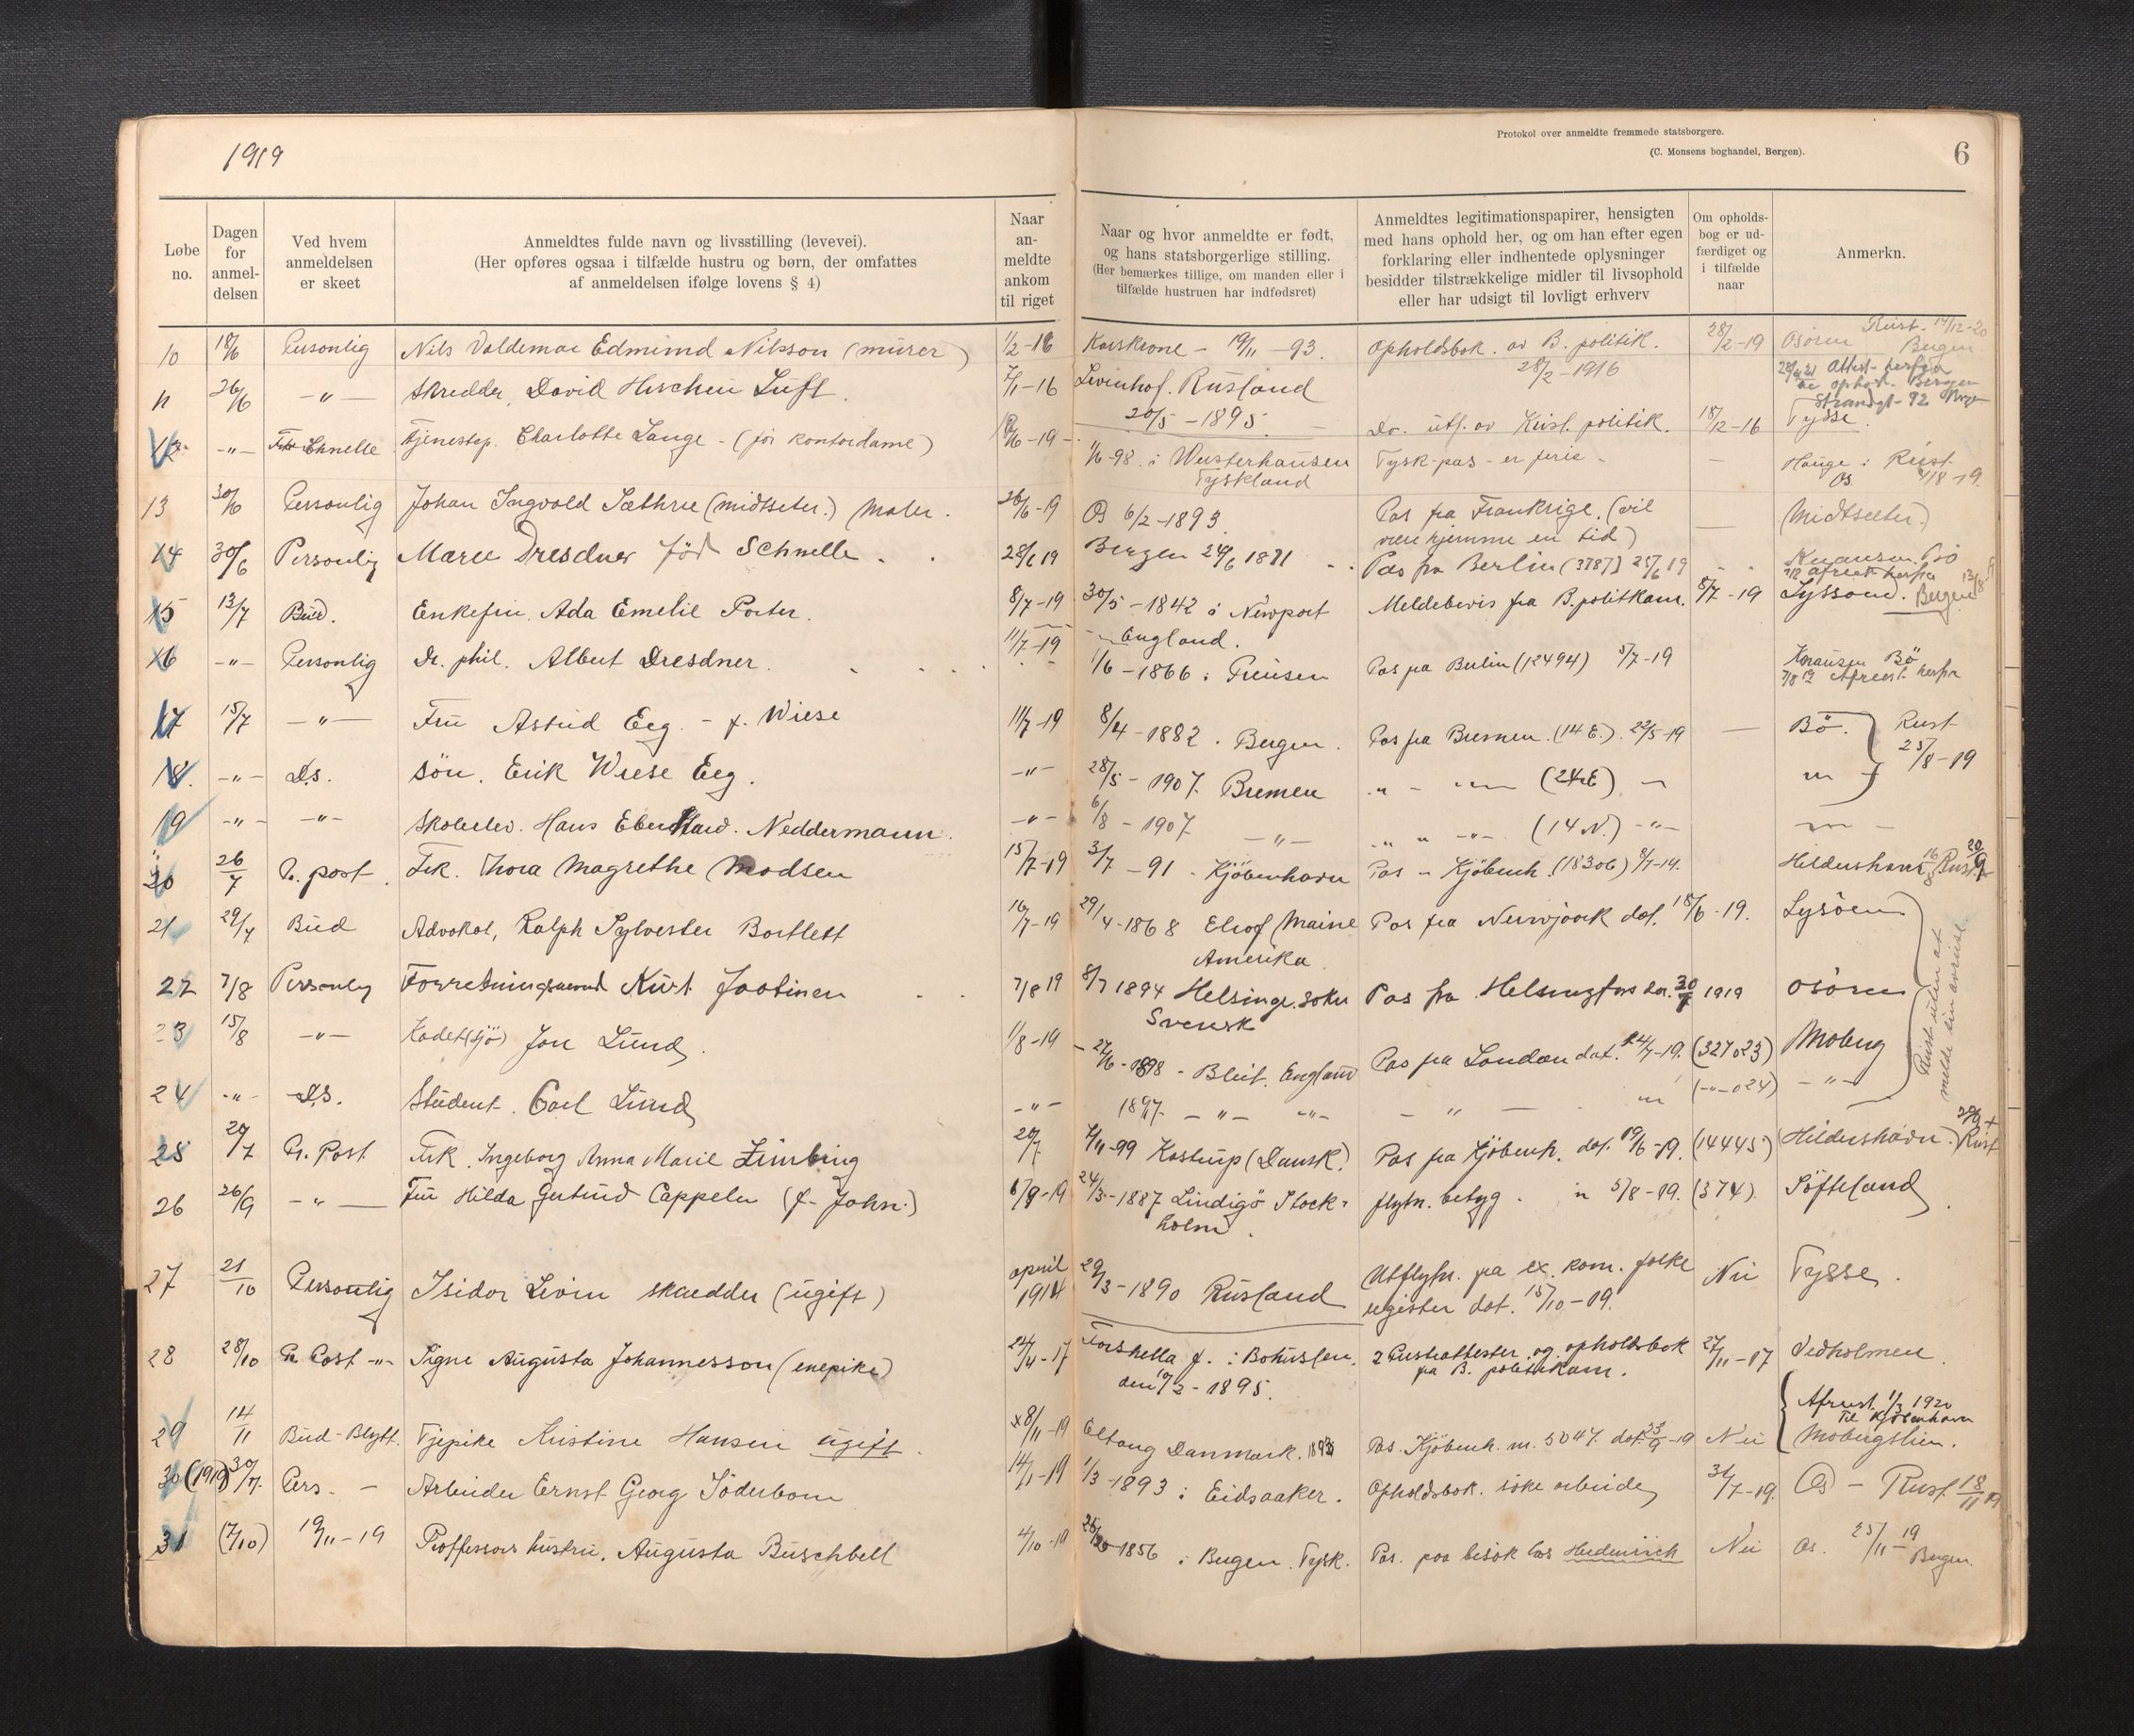 1919
Protokol over anmeldte fremmede statsborgere.
(C. Monsens boghandel, Bergen).
6
Løbe no.
Dagen for anmel-delsen
Ved hvem anmeldelsen er skeet
Anmeldtes fulde navn og livsstilling (levevei).
(Her opføres ogsaa i tilfælde hustru og børn, der omfattes
af anmeldelsen ifølge lovens § 4)
Naar an-meldte ankom til riget
Naar og hvor anmeldte er født,
og hans statsborgerlige stilling.
(Her bemærkes tillige, om manden eller i
tilfælde hustruen har indfødsret)
Anmeldtes legitimationspapirer, hensigten
med hans ophold her, og om han efter egen
forklaring eller indhentede oplysninger
besidder tilstrækkelige midler til livsophold
eller har udsigt til lovligt erhverv
Om opholds-bog er ud-færdiget og i tilfælde naar
Anmerkn.
10 18/6 Personlig Nils Valdemar Edmund Nilsson (murer) 1/2-16 Karskrone - 19/11-93. Opholdsbok. av B. politik. 28/2-19 Osören Bergen
28/2-1916
11 26/6 -"- Skredder, David Luft. 7/1-16 Levinhof. Rusland
20/5-1895. Do. utf. av Krist. politik. 18/12-16 Tysse.
Strandgt-92
12 -"- Schnelle Tjenestep. Charlotte Lange - (før kontordame) 1/6-98. i Wusterhausen Tysk-pas - er ferie - Hauge i Os
Tyskland
13 30/6 Personlig Johan Ingvald Sæthre (midtseter.) Maler. 26/6-19 Os 6/2-1893. Pas fra Frankrige. (vil
være hjemme en tid) (Midtseter.)
14 30/6 Personlig Marie Dresdner född Schnelle. 28/6 19 Bergen 24/6 1881 Pas fra Berlin (3787) 25/6 19
15 13/7 Bud. Enkefru. Ada Emelie Porter. 8/7-19 30/5-1842 i Newport Meldebevis fra B. politkam. 8/7-19 Bergen
England.
16 -"- Personlig Dr. phil. Albert Dresdner. 11/7-19 1/6-1866 i Preusen Pas fra Berlin (12494) 5/7-19 Bö
17 15/7 -"- Fru Astrid Eeg - f. Wiese 11/7-19 8/4-1882. Bergen. Pas fra Bremen. (14 E.). 22/5-19 Bö. Reist
25/8-19
18. -"- D.s. Sön. Erik Wiese Eeg. -"- 28/5-1907. Bremen
19 -"- -"- Skoleelev. Hans Eberhard. Neddermann. -"- 6/8-1907 -"- (14 N.) -"-
20 26/7 P. post. Frk. Thora Magrethe Madsen 15/7-19 3/7-91. Kjöbenhavn Pas - Kjöbenh. (18306) 8/7-19. Hildershavn
21 29/7 Bud Advokat, Ralph Sylvester Bartlett 16/7-19 29/4-1868 Eliof Maine Pas fra Newjork dat. 18/6-19. Lysöen
Amerika
Reist uten at
melde sin avreise.
22 7/8 Personlig Forretningsmand Kurt Jostinen 7/8 19 8/7 1894 Helsinge. Pas fra Helsingfors 30/7 1919 Osören
Svensk
23 15/8 -"- Kadet (sjö) Jon Lund. 1/8-19 27/6-1898 - England Pas fra London dat. 24/7-19. (327023) Moberg
24 -"- D.S. Student. Carl Lund -"- 1897. -"- (-"-024) -"-
25 20/7 P. Post. Frk. Ingeborg Anna Marie 20/7 7/11-99 Kastrup (Dansk). Pas fra Kjöbenh. dat. 19/6-19. (14445) Hildershavn. Reist
26 26/9 -"- Fru Hilda Gertrud Cappelen (f. John.) 6/9-19 24/3-1887 Lindigö Stock- flytn. betyg. 5/8-19. (374). Söfteland
holm.
27 21/10 Personlig Isidor Levin skrædder (ugift) april 1914 29/3-1890 Rusland Utflytn. fra folke Nei Tysse.
register dat. 15/10-19.
28 28/10 P. Post -"- Signe Augusta Johannesson (enepike) 24/4-17 Forshella f. i Bohuslen. 2 Presteattester og opholdsbok 27/11-17 Vedholmen.
den 19/2-1895. fra B. politikam.
Afreist 1/3 1920
Til Kjöbenhavn
29 14/11 Bud-Blytt. Tjepike Kristine Hansen ugift. 8/11-19 Eltang Danmark. Pas. Kjöbenh. nr. 5047. dat. 23/9-19 Nei Mobergslien.
30 (1919) 30/7. Pers. - Arbeider Ernst Georg Söderbom 14/1-19 1/3-1893 i Eidsaaker. Opholdsbok. söke arbeide 31/7-19. Os - Reist 18/11 19
31 (7/10) 19/11-19 Proffessors hustru. Augusta Buschbell 4/10-19 1856 i Bergen. Tysk. Pas. paa besök hos Nei Os. 25/11 19 Bergen.